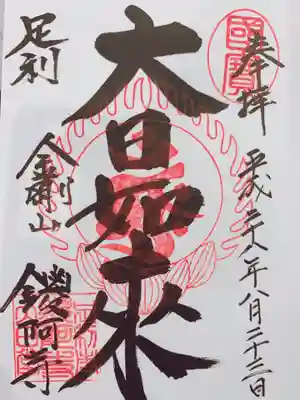 奉拝
平成二十八年八月二十三日
大日如来
足利
金剛山
鑁阿寺
國寶